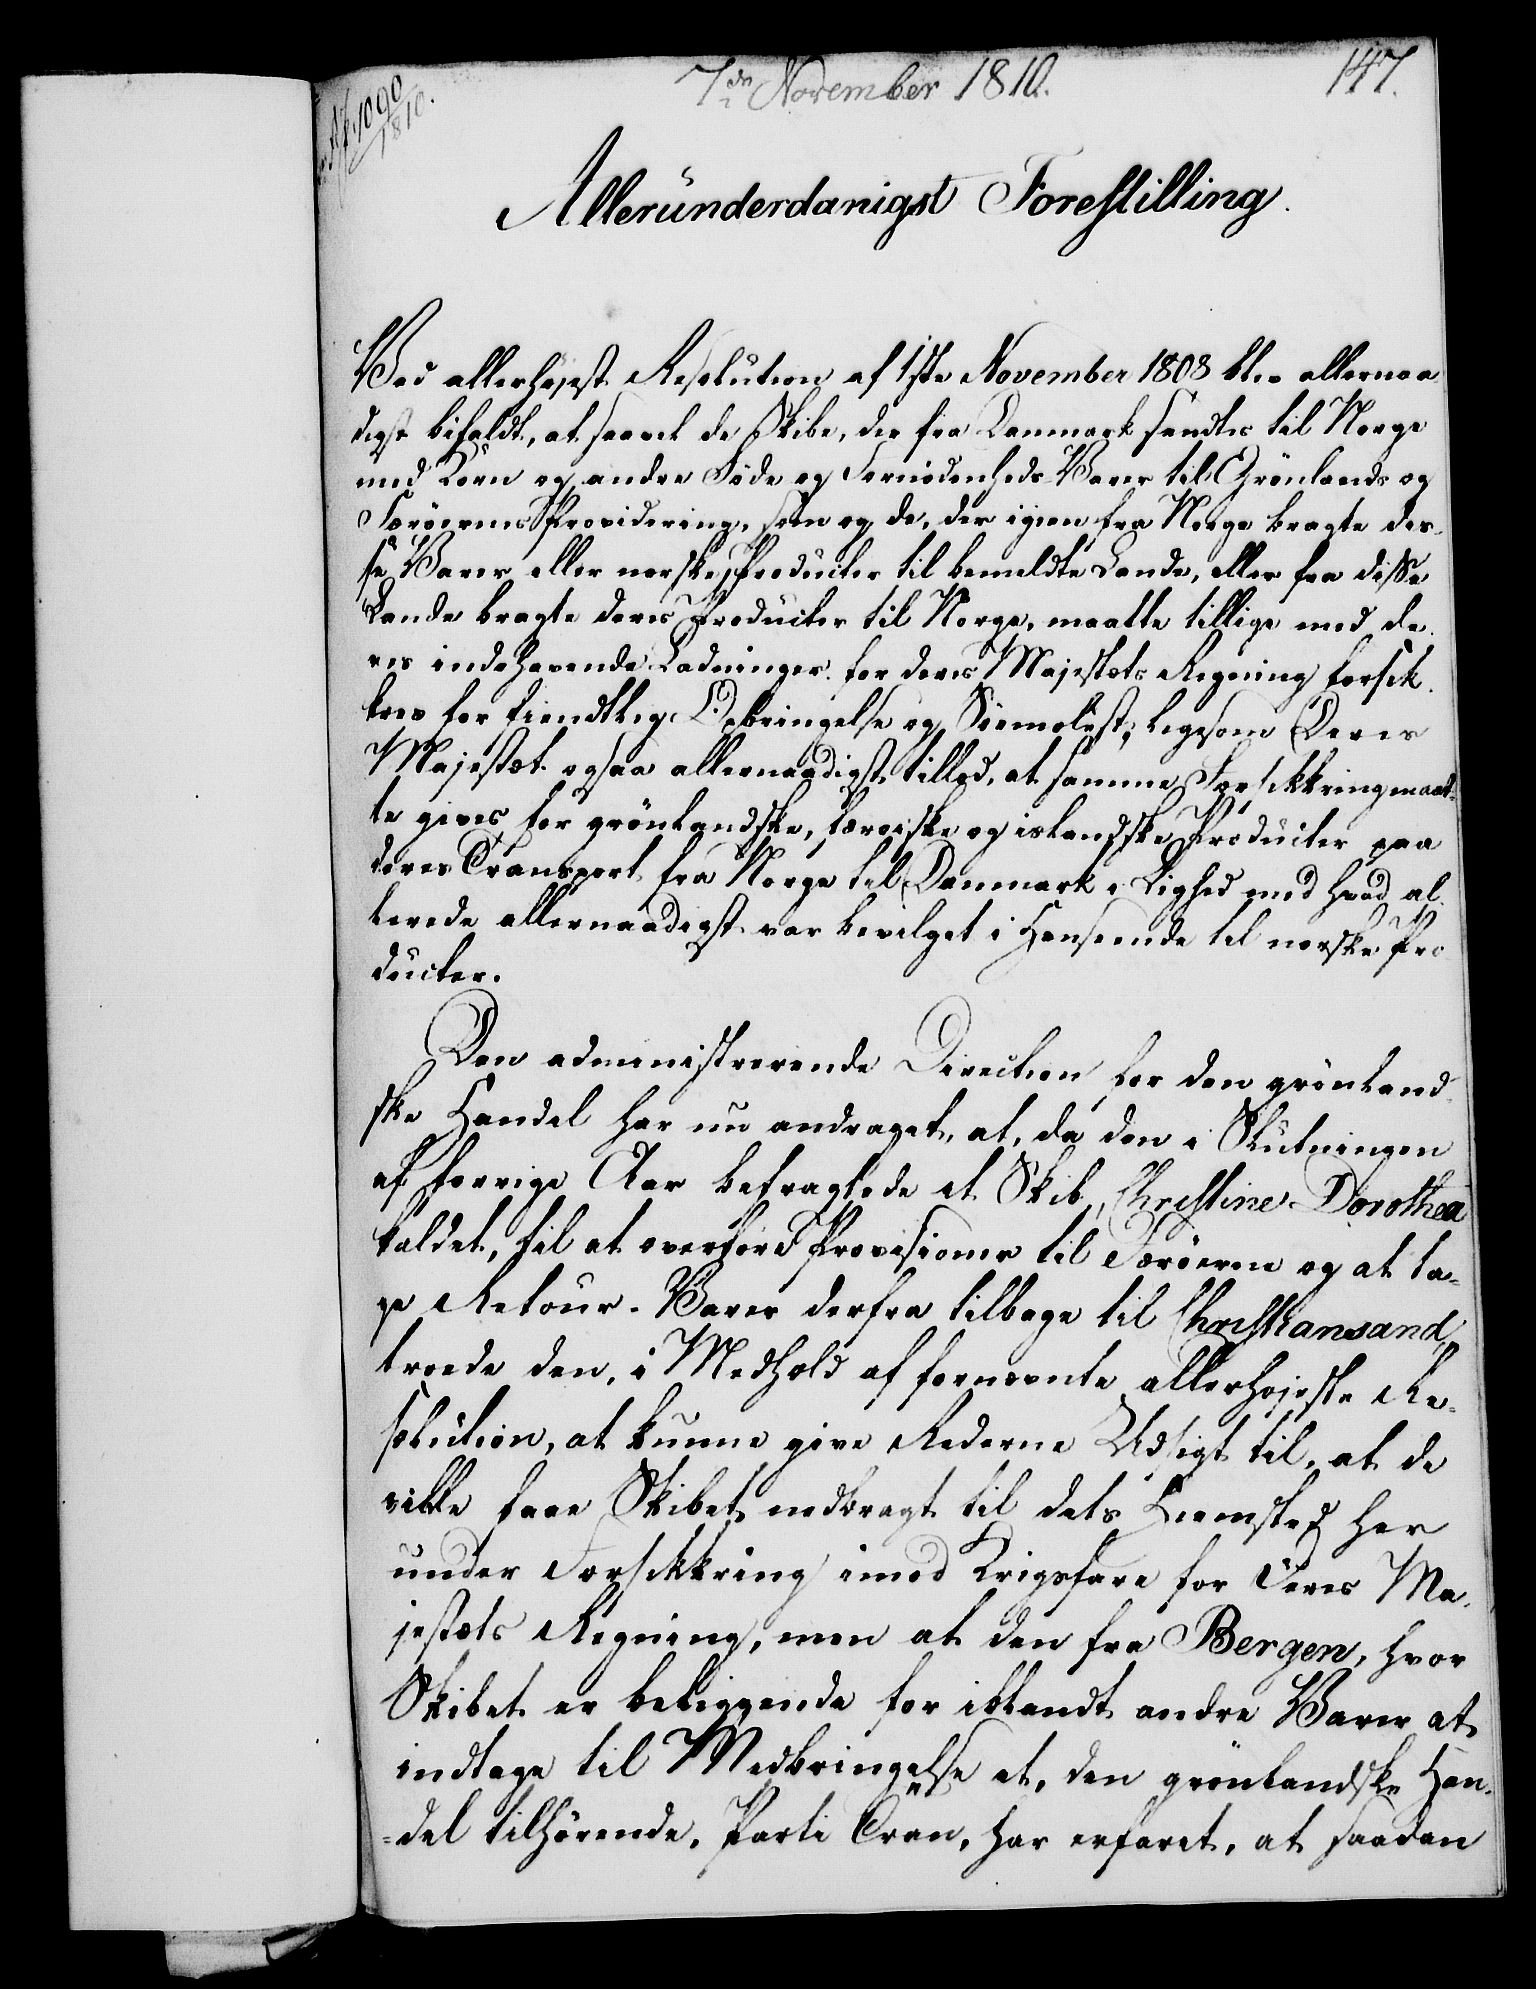 7de November 1810.
147.
1090
1810.
Alleründerdanigst Forestilling.
Ved allerhøjest Resolution af 1ste November 1808 blev allernaa
digst bifaldt, at saavel de Skibe, der fra Danmark sendtes til Norge
med Korn og andre Føde og Fornødenheds-Varer til Grønlands og
Færøernes Providering, som og de, der igien fra Norge bragte des-
se Varer eller norske Producter til bemeldte Lande, eller fra disse
Lande bragte deres Producter til Norge, maatte tillige med de
res indehavende Ladninger for Deres Majestæts Regning forsik
kres for fiendtlig Opbringelse og Sömolest; ligesom Deres
Majestæt ogsaa allernaadigst tillod, at samme Forsikkring maat-
te gives for grønlandske, færøiske og islandske Producter paa
deres Transport fra Norge til Danmark i Lighed med hvad al
lerede allernaadigst var bevilget i Henseende til norske Pro
ducter.
Den administrerende Direction for den grønland
ske Handel har nu andraget, at, da den i Slutningen
af forrige Aar befragtede et Skib, Christine Dorothea
kaldet, til at overføre Provisioner til Færöerne og at ta-
ge Retour-Varer derfra tilbage til Christiansand,
troede den, i Medhold af fornævnte allerhøjeste Re-
solution, at kunne give Rederne Udsigt til, at de
ville faae Skibet nedbragt til dets Hiemsted her
under Forsikkring imod Krigsfare for Deres Ma-
jestæts Regning, men at den fra Bergen, hvor
Skibet er beliggende for iblandt andre Varer at
indtage til Medbringelse et, den grønlandske Han-
-del tilhørende, Parti Tran, har erfaret, at saadan